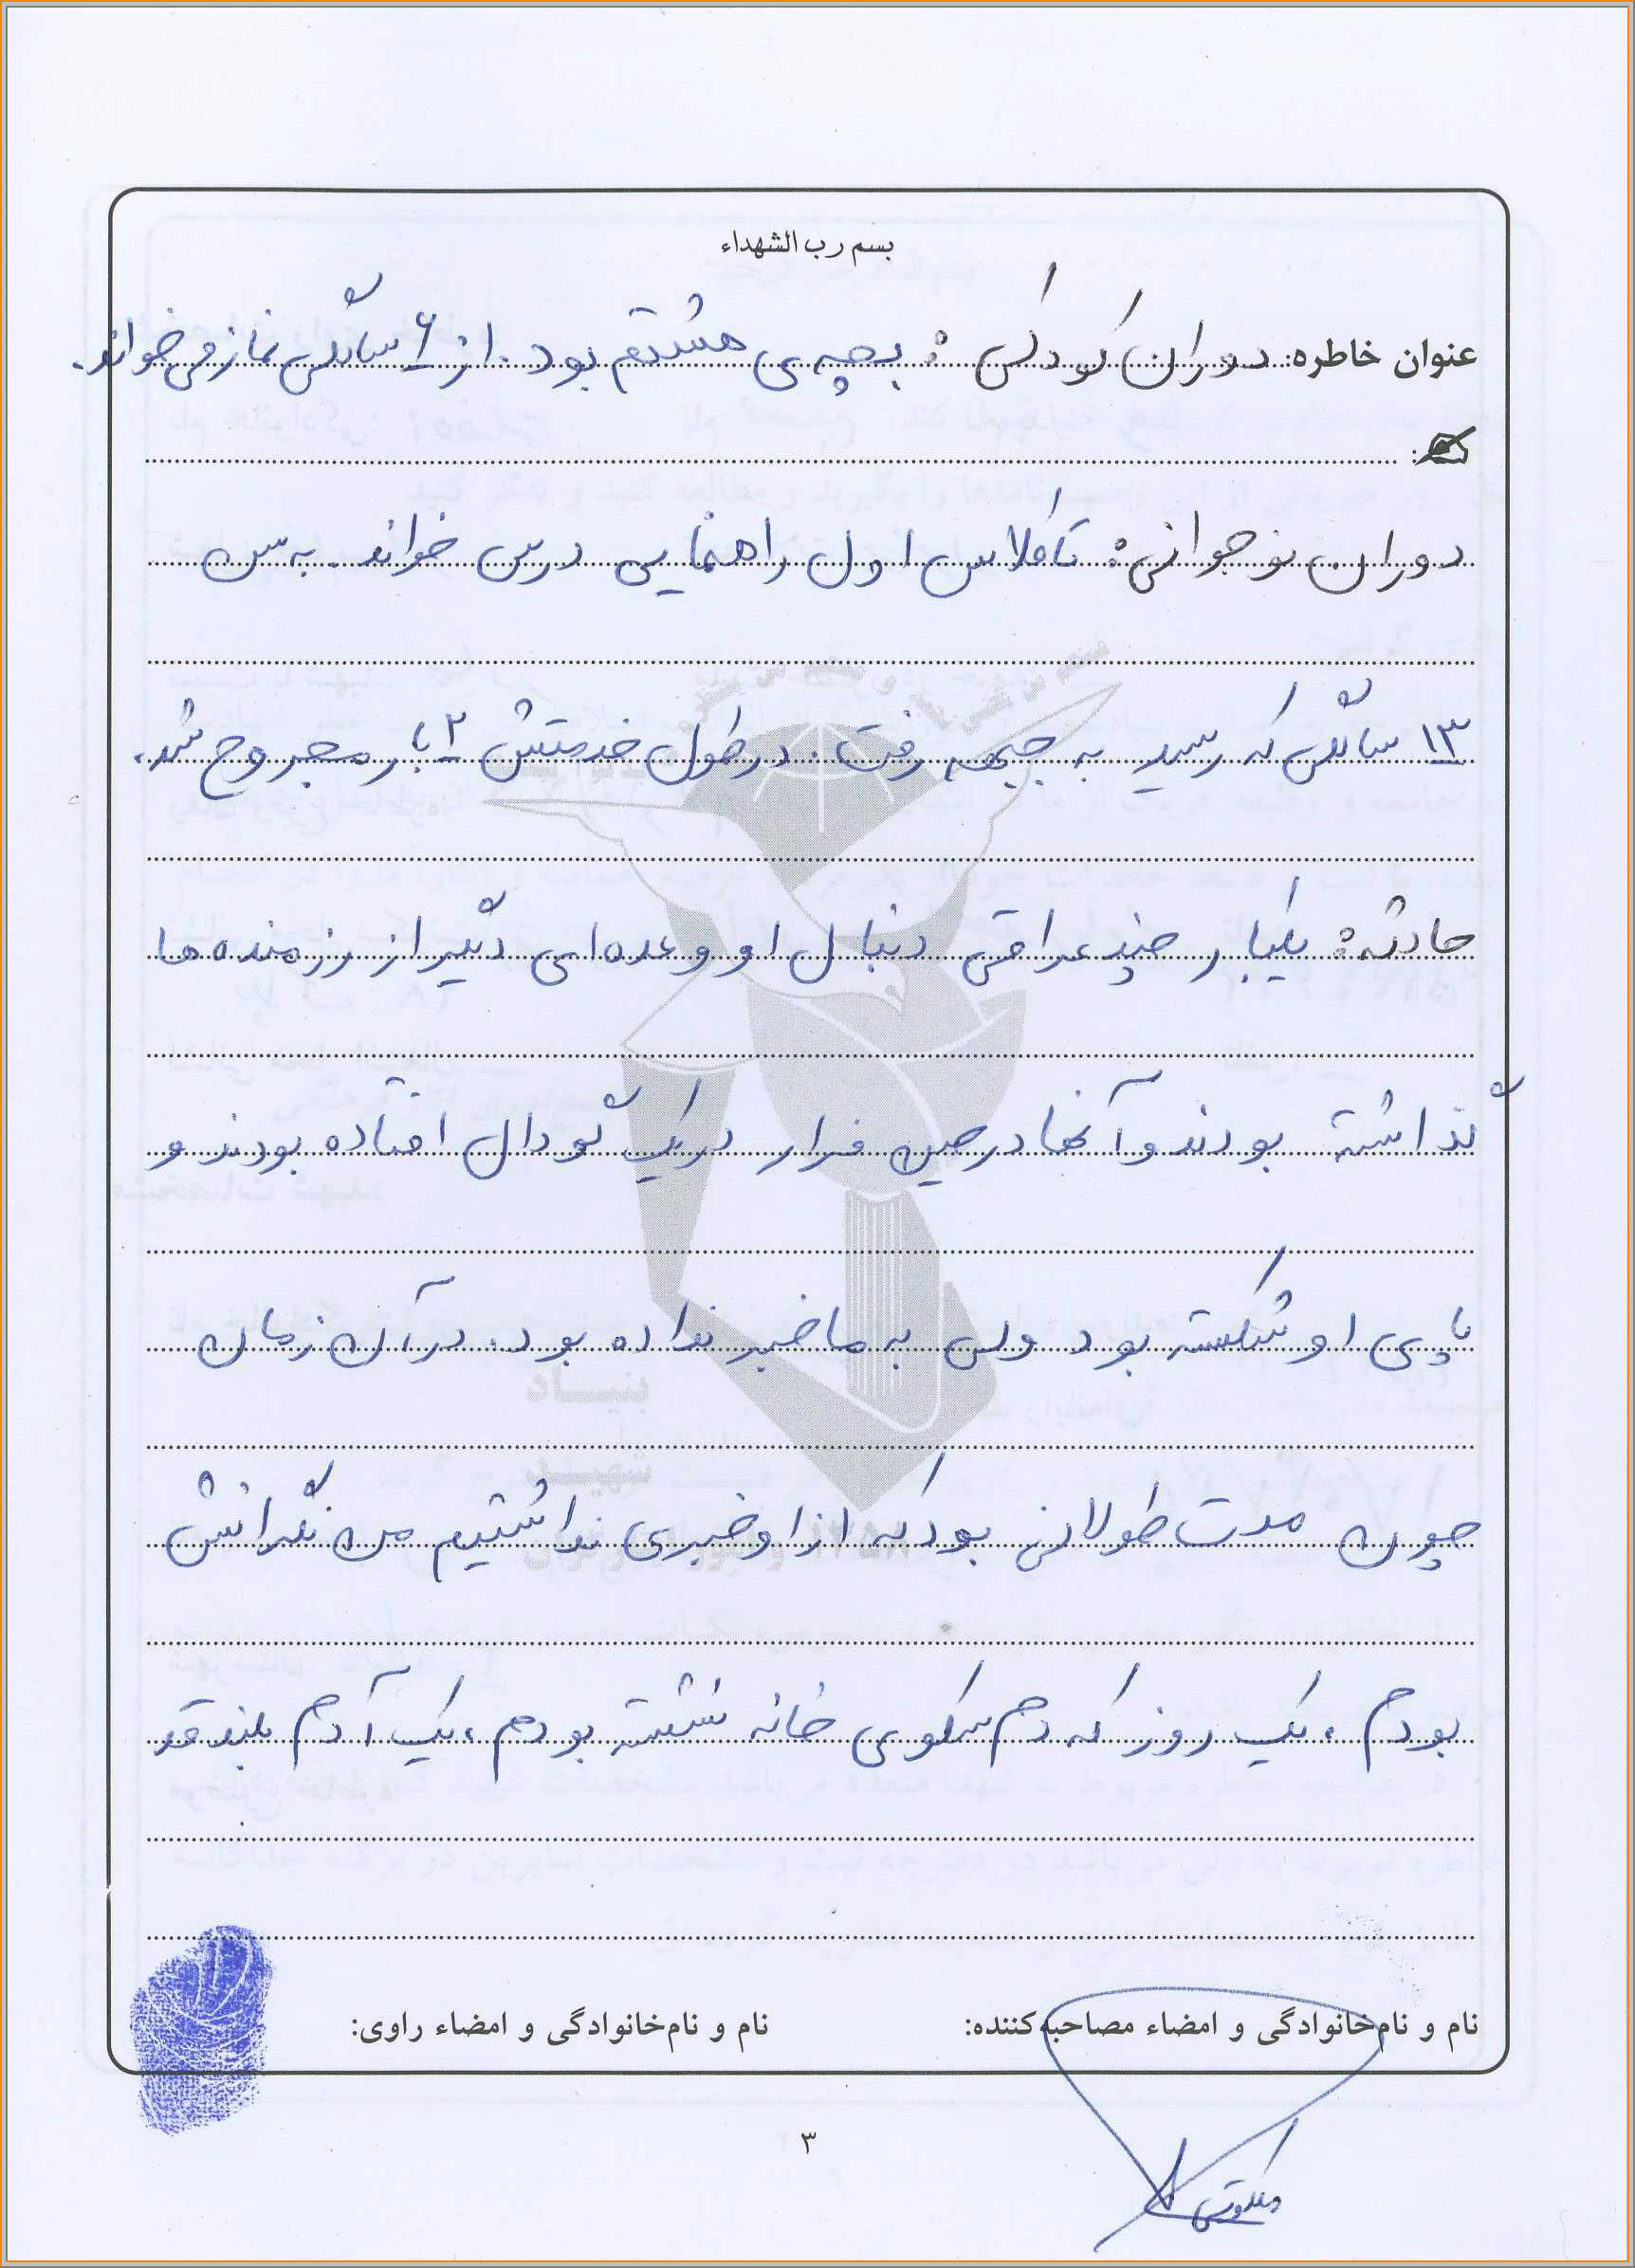 بسم رب الشهداء
عنوان خاطره: دوران کودکی: بچه‌ی هشتم بود. از ۶ سالگی نماز می‌خواند.
دوران نوجوانی: تا کلاس اول راهنمایی درس خواند. به سن
۱۳ سالگی که رسید به جبهه رفت. در طول خدمتش ۲ بار مجروح شد.
حادثه: یکبار چند عراقی دنبال او و عده‌ای دیگر از رزمنده‌ها
گذاشته بودند و آنها در حین فرار در یک گودال افتاده بودند و
پای او شکسته بود ولی به ما خبر نداده بود. در آن زمان
چون مدت طولانی بود که از او خبری نداشتیم من نگرانش
بودم، یک روز که دم سکوی خانه نشسته بودم، یک آدم بلند قد
نام و نام‌خانوادگی و امضاء مصاحبه‌کننده: نام و نام‌خانوادگی و امضاء راوی:
۳